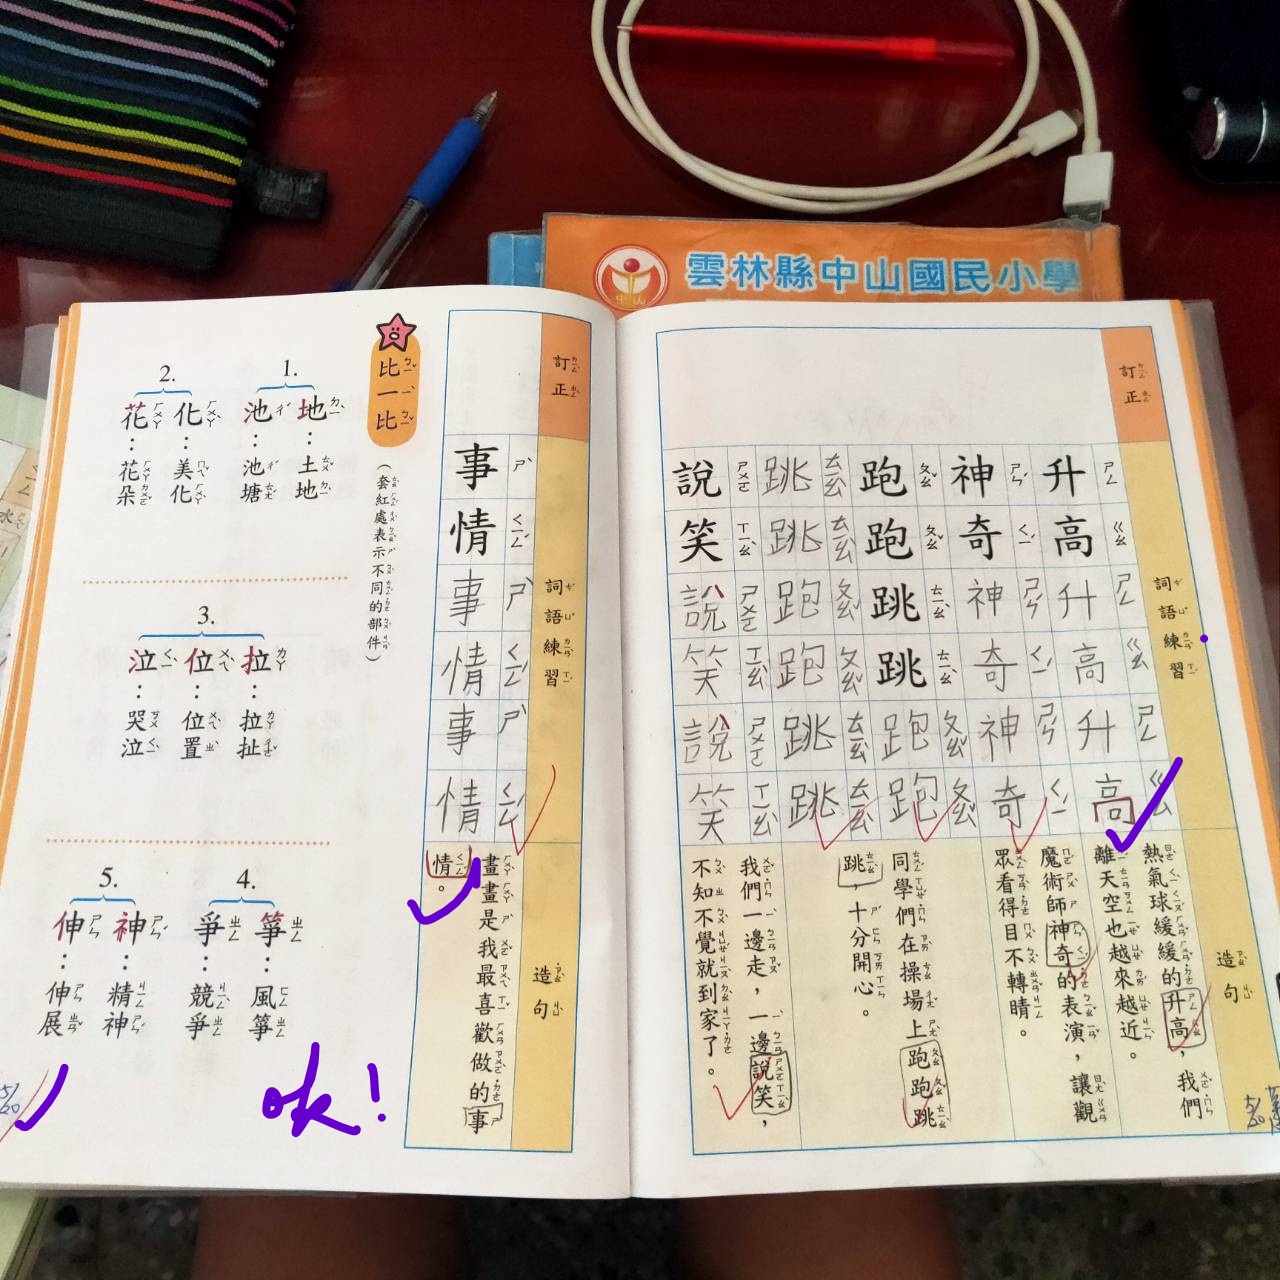 雲林縣中山國民小學
訂正
詞語練習
造句
升高升高升高
神奇神奇神奇
跑跑跳跳跑跑
跳跳跑跑跳跳
說笑說笑說笑
熱氣球緩緩的升高，我們
離天空也越來越近。
魔術師神奇的表演，讓觀
眾看得目不轉睛。
同學們在操場上跑跑跳
跳，十分開心。
我們一邊走，一邊說笑，
不知不覺就到家了。
訂正
詞語練習
造句
事情事情事情
畫畫是我最喜歡做的事
情。
比一比
（套紅處表示不同的部件）
1.
地：土地
池：池塘
2.
化：美化
花：花朵
3.
拉：拉扯
位：位置
泣：哭泣
4.
箏：風箏
爭：競爭
5.
神：精神
伸：伸展
ok!
5/20
5/20